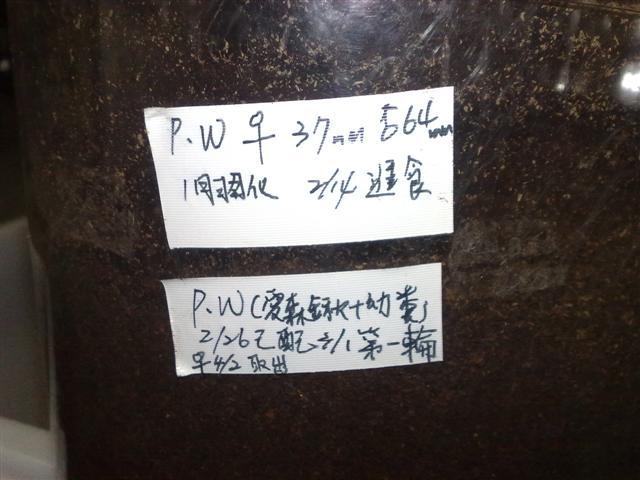 P.W ♀ 37mm ♂64mm
1月羽化 2/14 進食
P.W(愛森鍬秋+幼糞)
2/26已配 3/1 第一輪
♀4/2取出